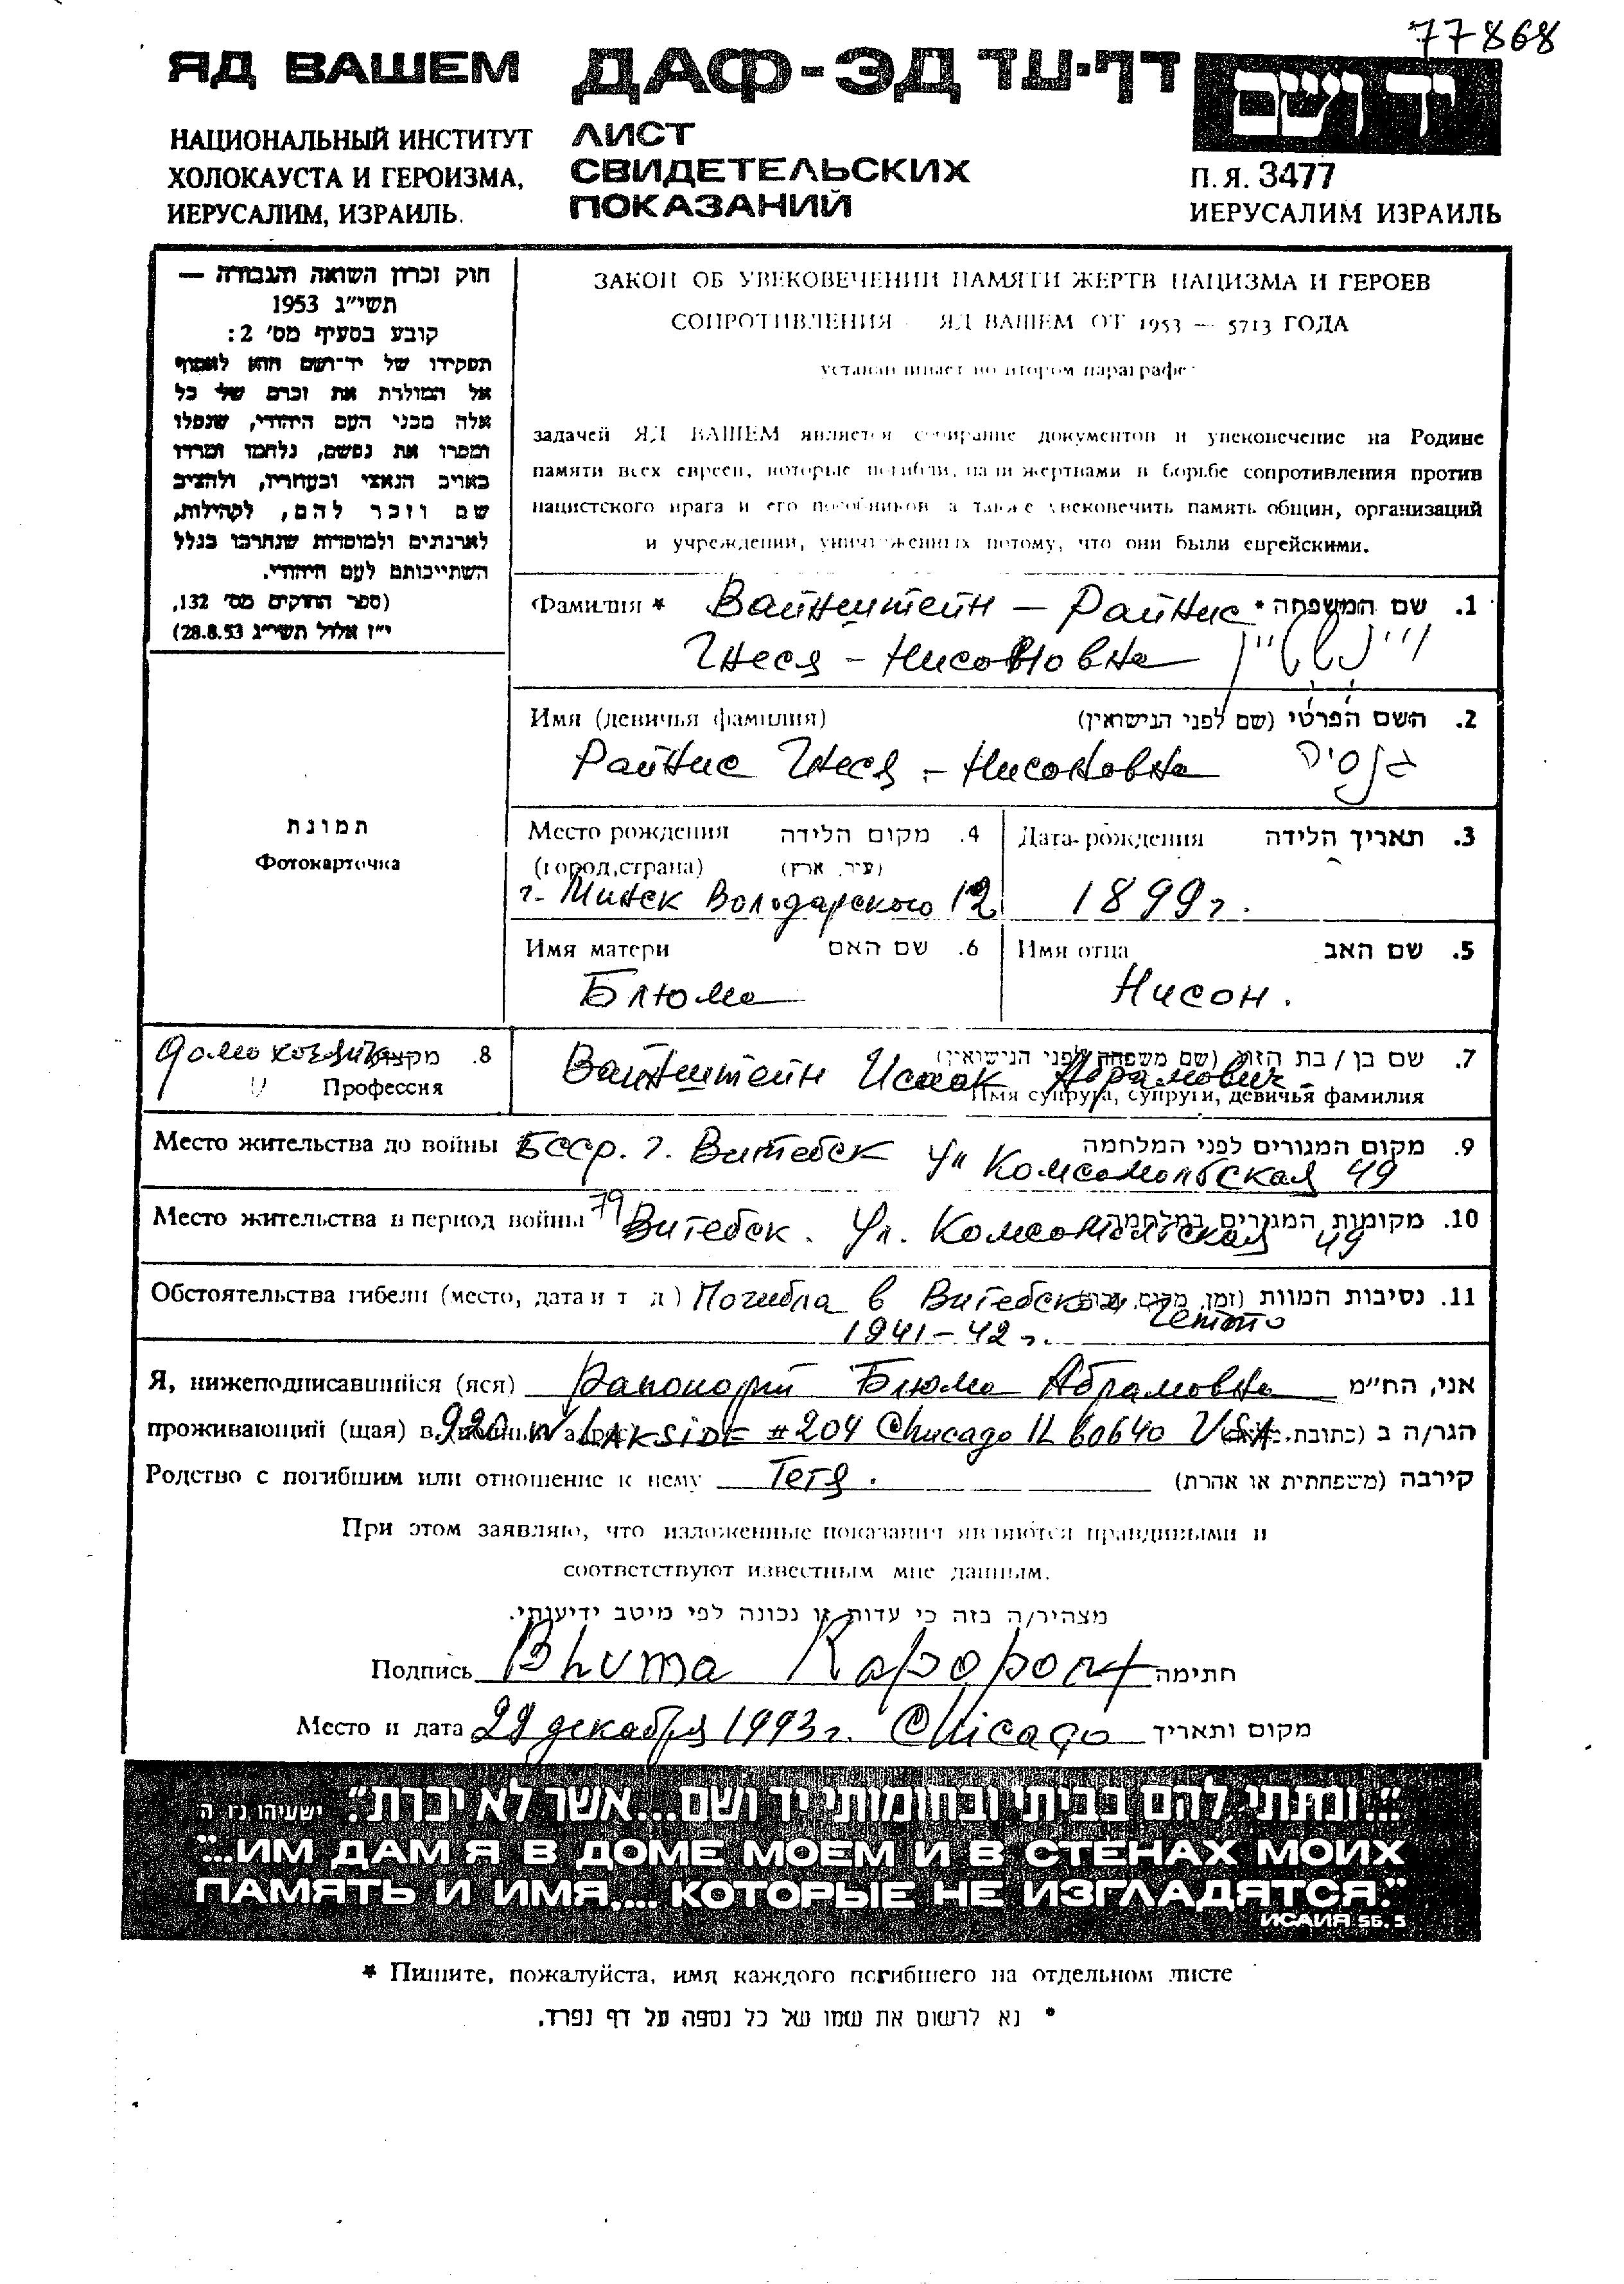 77868
ЯД ВАШЕМ
ДАФ-ЭД דף-עד
יד ושם
НАЦИОНАЛЬНЫЙ ИНСТИТУТ
ХОЛОКАУСТА И ГЕРОИЗМА,
ИЕРУСАЛИМ, ИЗРАИЛЬ.
ЛИСТ
СВИДЕТЕЛЬСКИХ
ПОКАЗАНИЙ
П.Я. 3477
ИЕРУСАЛИМ ИЗРАИЛЬ
חוק זכרון השואה והגבורה —
תשי״ג 1953
קובע בסעיף מס׳ 2:
תפקידו של יד־ושם הוא לאסוף
אל המולדת את זכרם של כל
אלה מבני העם היהודי, שנפלו
ומסרו את נפשם, נלחמו ומרדו
באויב הנאצי ובעוזריו, ולהציב
שם וזכר להם, לקהילות,
לארגונים ולמוסדות שנחרבו בגלל
השתייכותם לעם היהודי.
(ספר החוקים מס׳ 132,
י״ז אלול תשי״ג 28.8.53)
ЗАКОН ОБ УВЕКОВЕЧЕНИИ ПАМЯТИ ЖЕРТВ НАЦИЗМА И ГЕРОЕВ
СОПРОТИВЛЕНИЯ - ЯД ВАШЕМ ОТ 1953 — 5713 ГОДА
устанавливает во втором параграфе:
задачей ЯД ВАШЕМ является собирание документов и увековечение на Родине
памяти всех евреев, которые погибли, пали жертвами в борьбе сопротивления против
нацистского врага и его пособников а также увековечить память общин, организаций
и учреждений, уничтоженных потому, что они были еврейскими.
Фамилия * Вайнштейн - Райнис 1. שם המשפחה *
Гнеся - Нисоновна ויינשטיין
Имя (девичья фамилия) 2. השם הפרטי (שם לפני הנישואין)
Райнис Гнеся - Нисоновна גנסיה
Место рождения 4. מקום הלידה
(город, страна) (עיר, ארץ)
г. Минск Володарского 12
Дата рождения 3. תאריך הלידה
1899г.
Имя матери 6. שם האם
Блюма
Имя отца 5. שם האב
Нисон.
תמונת
Фотокарточка
8. מקצוע
домохозяйка
Профессия
7. שם בן / בת הזוג (שם משפחה לפני הנישואין)
Вайнштейн Исаак Абрамович
Имя супруга, супруги, девичья фамилия
Место жительства до войны БССР. г. Витебск 9. מקום המגורים לפני המלחמה
ул Комсомольская 49
Место жительства в период войны 10. מקומות המגורים במלחמה
Витебск. Ул. Комсомольская 49
Обстоятельства гибели (место, дата и т д) Погибла в Витебском 11. נסיבות המוות (זמן, מקום,
гетто
1941-42г.
Я, нижеподписавшийся (яся) Рапопорт Блюма Абрамовна אני, הח״מ
проживающий (щая) в 920 W LAKSIDE #204 Chicago IL 60640 USA הגר/ה ב (כתובת,
Родство с погибшим или отношение к нему Тетя. קירבה (משפחתית או אחרת)
При этом заявляю, что изложенные показания являются правдивыми и
соответствуют известным мне данным.
מצהיר/ה בזה כי עדות זו נכונה לפי מיטב ידיעתי.
Подпись Bhuma Rapoport חתימה
Место и дата 29 декабря 1993г. Chicago מקום ותאריך
"...ונתתי להם בביתי ובחומותי יד ושם... אשר לא יכרת". ישעיהו נו ה
"...ИМ ДАМ Я В ДОМЕ МОЕМ И В СТЕНАХ МОИХ
ПАМЯТЬ И ИМЯ.... КОТОРЫЕ НЕ ИЗГЛАДЯТСЯ."
ИСАИЯ 56. 5
* Пишите, пожалуйста, имя каждого погибшего на отдельном листе
* נא לרשום את שמו של כל נספה על דף נפרד.